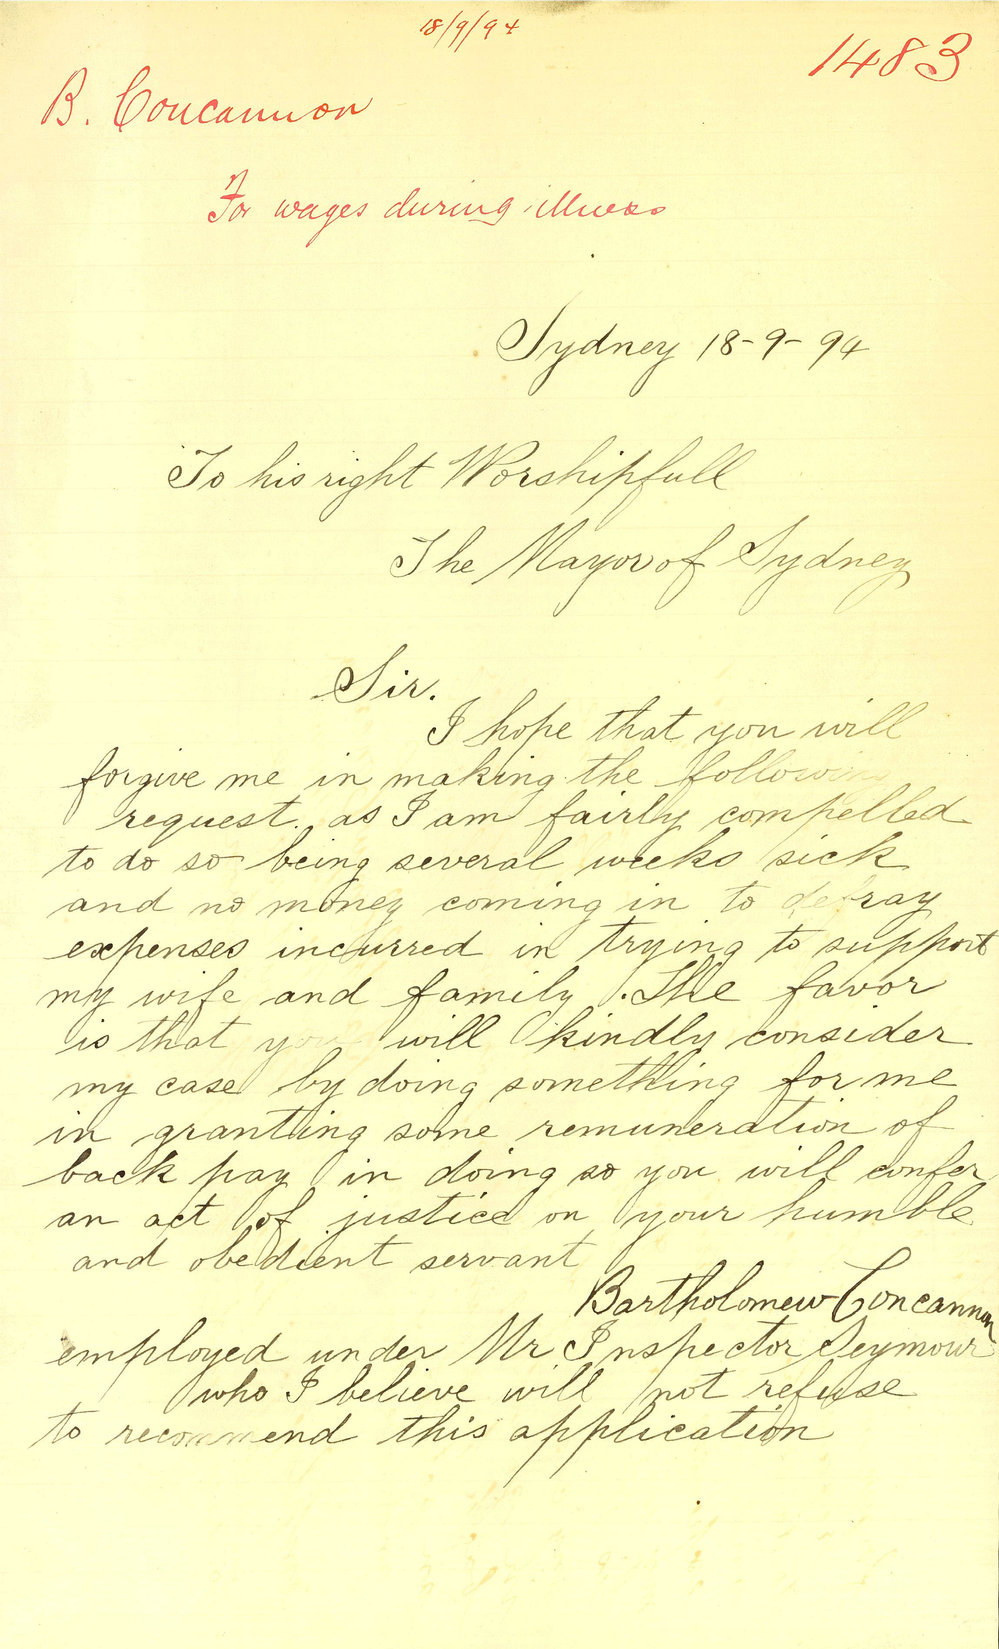 18/9/94
1483
B. Concannon
For wages during illness
Sydney 18-9-94
To his right Worshipfull
The Mayor of Sydney
Sir.
I hope that you will
forgive me in making the following
request. as I am fairly compelled
to do so being several weeks sick
and no money coming in to defray
expenses incurred in trying to support
my wife and family. The favor
is that you will kindly consider
my case by doing something for me
in granting some remuneration of
back pay in doing so you will confer
an act of justice on your humble
and obedient servant
Bartholomew Concannon
employed under Mr Inspector Seymour
who I believe will not refuse
to recommend this application